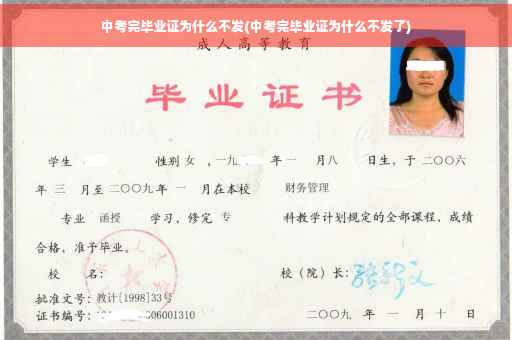 中考完毕业证为什么不发(中考完毕业证为什么不发了)
成人高等教育
毕业证书
学生 性别 女 ，一九 年一 月八 日生，于二〇〇六
年 三 月至二〇〇九年 一 月在本校 财务管理
专业 函授 学习，修完 专 科教学计划规定的全部课程，成绩
合格，准予毕业。
校 名： 校（院）长：
批准文号：教计[1998]33号
证书编号： 06001310 二〇〇九 年 一 月 十 日